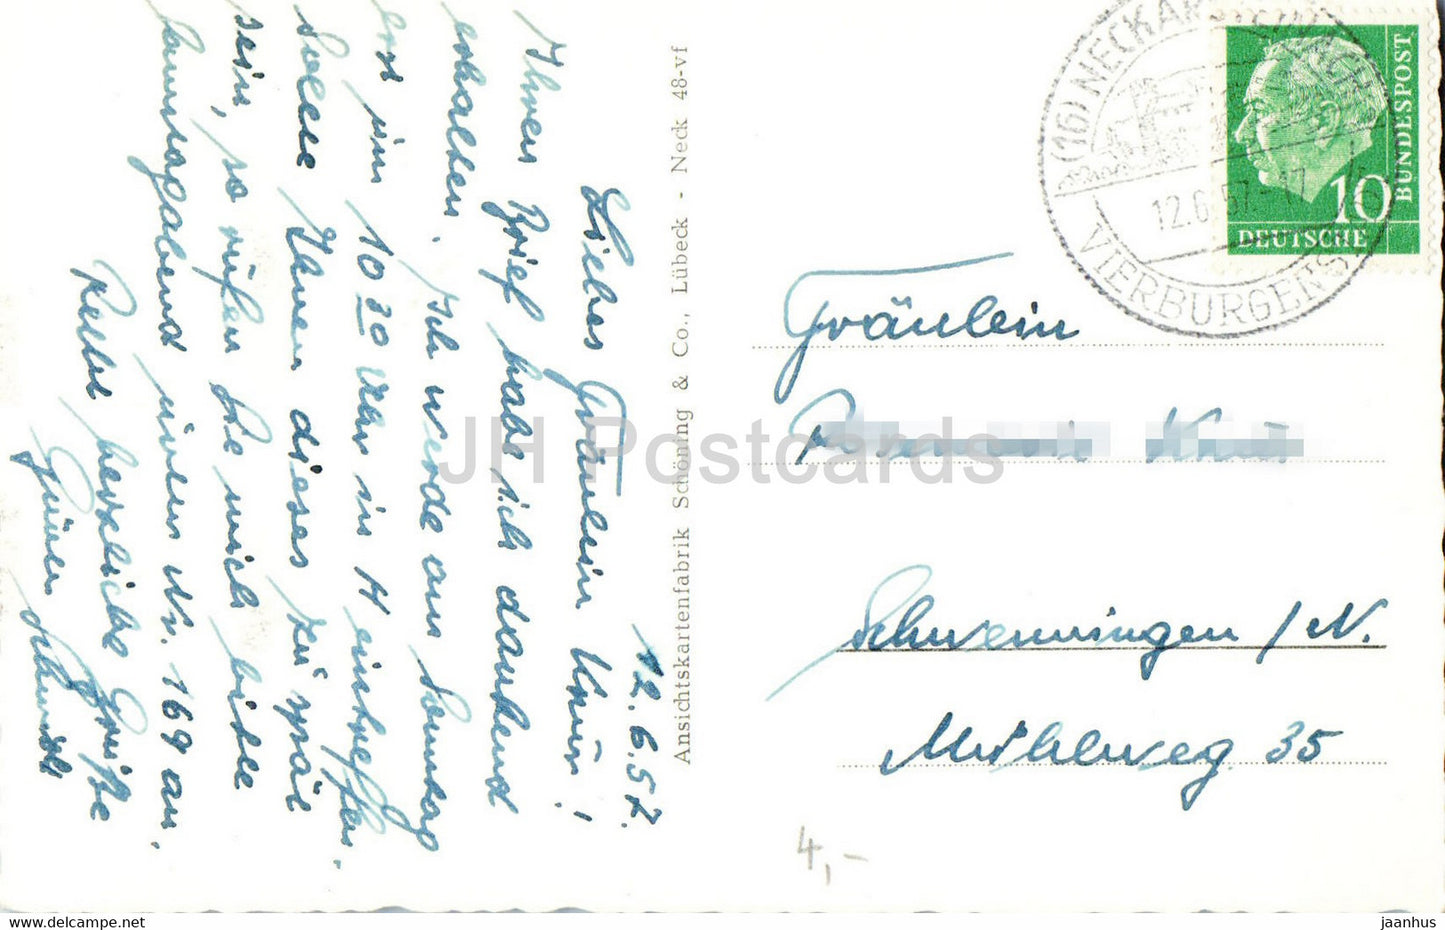 12.6.57.
Liebes Fräulein Knür!
Ihren Brief habe ich dankend
erhalten. Ich werde am Sonntag
erst um 10 30 Uhr in H eintreffen.
Sollte Ihnen dieses zu spät
sein, so rufen Sie mich bitte
Samstagabend unter Nr. 169 an.
Recht herzliche Grüße
Schmidt
Ansichtskartenfabrik Schöning & Co., Lübeck - Neck 48-vf
(16) NECKARSTEINACH
12.6.57-17
VIERBURGENST
BUNDESPOST
10
DEUTSCHE
Fräulein
Schwenningen /N.
Mühlweg 35
4,-
JH Postcards
www.jhpostcard.com
jaanhus